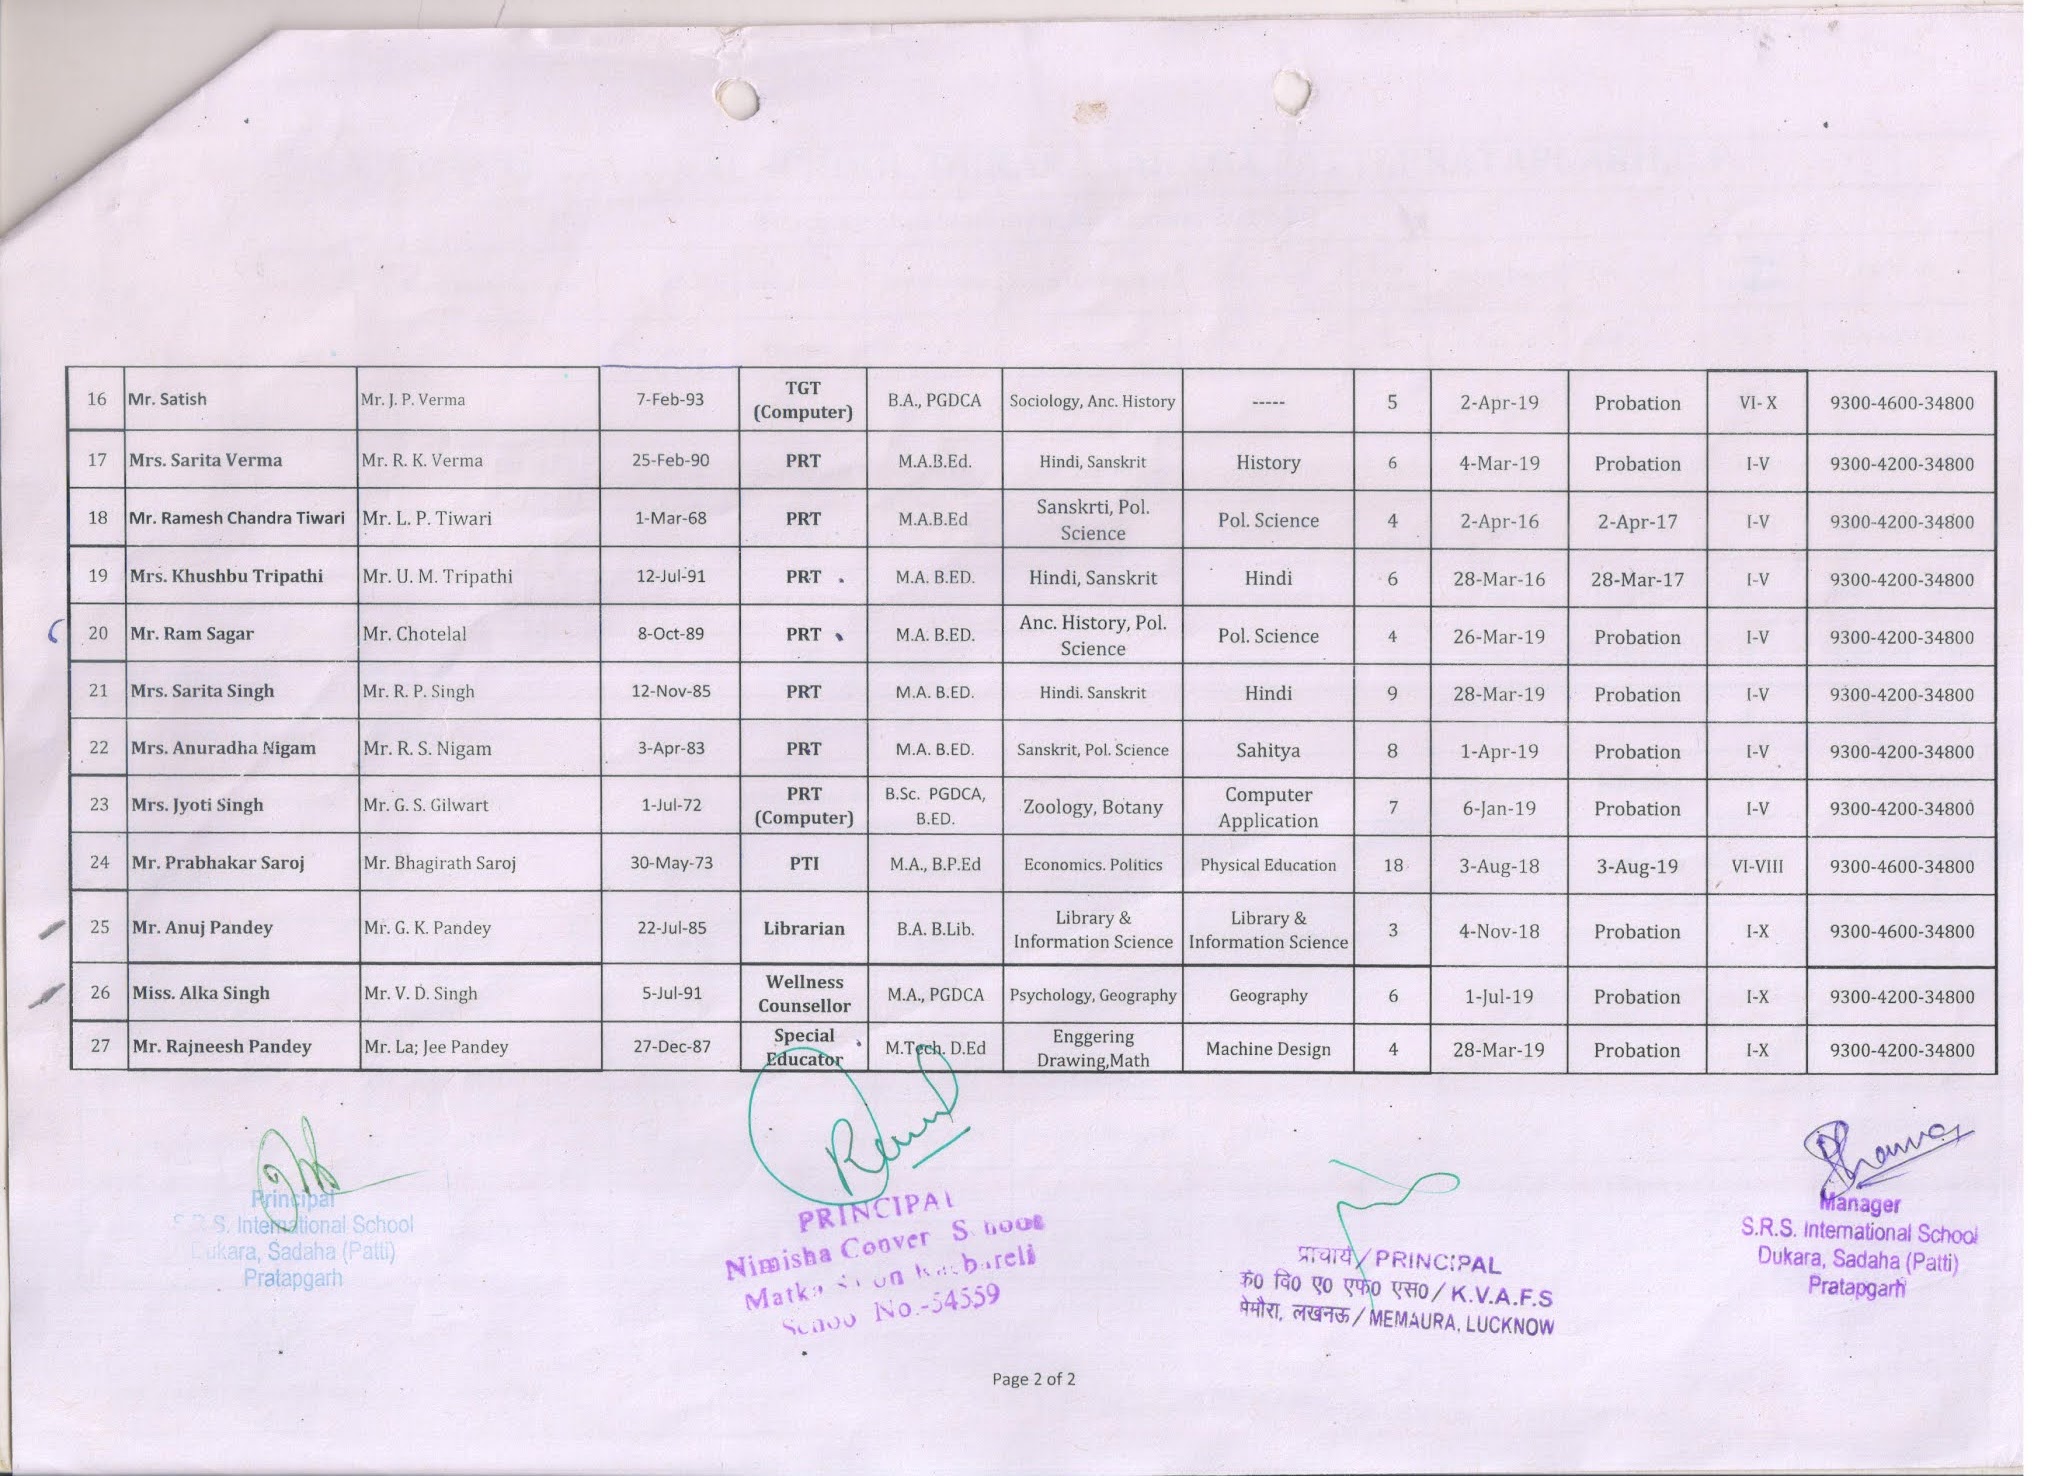 16 Mr. Satish Mr. J. P. Verma 7-Feb-93 TGT (Computer) B.A., PGDCA Sociology, Anc. History ----- 5 2-Apr-19 Probation VI- X 9300-4600-34800
17 Mrs. Sarita Verma Mr. R. K. Verma 25-Feb-90 PRT M.A.B.Ed. Hindi, Sanskrit History 6 4-Mar-19 Probation I-V 9300-4200-34800
18 Mr. Ramesh Chandra Tiwari Mr. L. P. Tiwari 1-Mar-68 PRT M.A.B.Ed Sanskrti, Pol. Science Pol. Science 4 2-Apr-16 2-Apr-17 I-V 9300-4200-34800
19 Mrs. Khushbu Tripathi Mr. U. M. Tripathi 12-Jul-91 PRT M.A. B.ED. Hindi, Sanskrit Hindi 6 28-Mar-16 28-Mar-17 I-V 9300-4200-34800
20 Mr. Ram Sagar Mr. Chotelal 8-Oct-89 PRT M.A. B.ED. Anc. History, Pol. Science Pol. Science 4 26-Mar-19 Probation I-V 9300-4200-34800
21 Mrs. Sarita Singh Mr. R. P. Singh 12-Nov-85 PRT M.A. B.ED. Hindi. Sanskrit Hindi 9 28-Mar-19 Probation I-V 9300-4200-34800
22 Mrs. Anuradha Nigam Mr. R. S. Nigam 3-Apr-83 PRT M.A. B.ED. Sanskrit, Pol. Science Sahitya 8 1-Apr-19 Probation I-V 9300-4200-34800
23 Mrs. Jyoti Singh Mr. G. S. Gilwart 1-Jul-72 PRT (Computer) B.Sc. PGDCA, B.ED. Zoology, Botany Computer Application 7 6-Jan-19 Probation I-V 9300-4200-34800
24 Mr. Prabhakar Saroj Mr. Bhagirath Saroj 30-May-73 PTI M.A., B.P.Ed Economics. Politics Physical Education 18 3-Aug-18 3-Aug-19 VI-VIII 9300-4600-34800
25 Mr. Anuj Pandey Mr. G. K. Pandey 22-Jul-85 Librarian B.A. B.Lib. Library & Information Science Library & Information Science 3 4-Nov-18 Probation I-X 9300-4600-34800
26 Miss. Alka Singh Mr. V. D. Singh 5-Jul-91 Wellness Counsellor M.A., PGDCA Psychology, Geography Geography 6 1-Jul-19 Probation I-X 9300-4200-34800
27 Mr. Rajneesh Pandey Mr. La; Jee Pandey 27-Dec-87 Special Educator M.Tech. D.Ed Enggering Drawing,Math Machine Design 4 28-Mar-19 Probation I-X 9300-4200-34800
Principal
S.R.S. International School
Dukara, Sadaha (Patti)
Pratapgarh
PRINCIPAL
Nimisha
No.-54559
प्राचार्य / PRINCIPAL
के0 वि0 ए0 एफ0 एस0 / K.V.A.F.S
मेमौरा, लखनऊ / MEMAURA, LUCKNOW
Manager
S.R.S. International School
Dukara, Sadaha (Patti)
Pratapgarh
Page 2 of 2